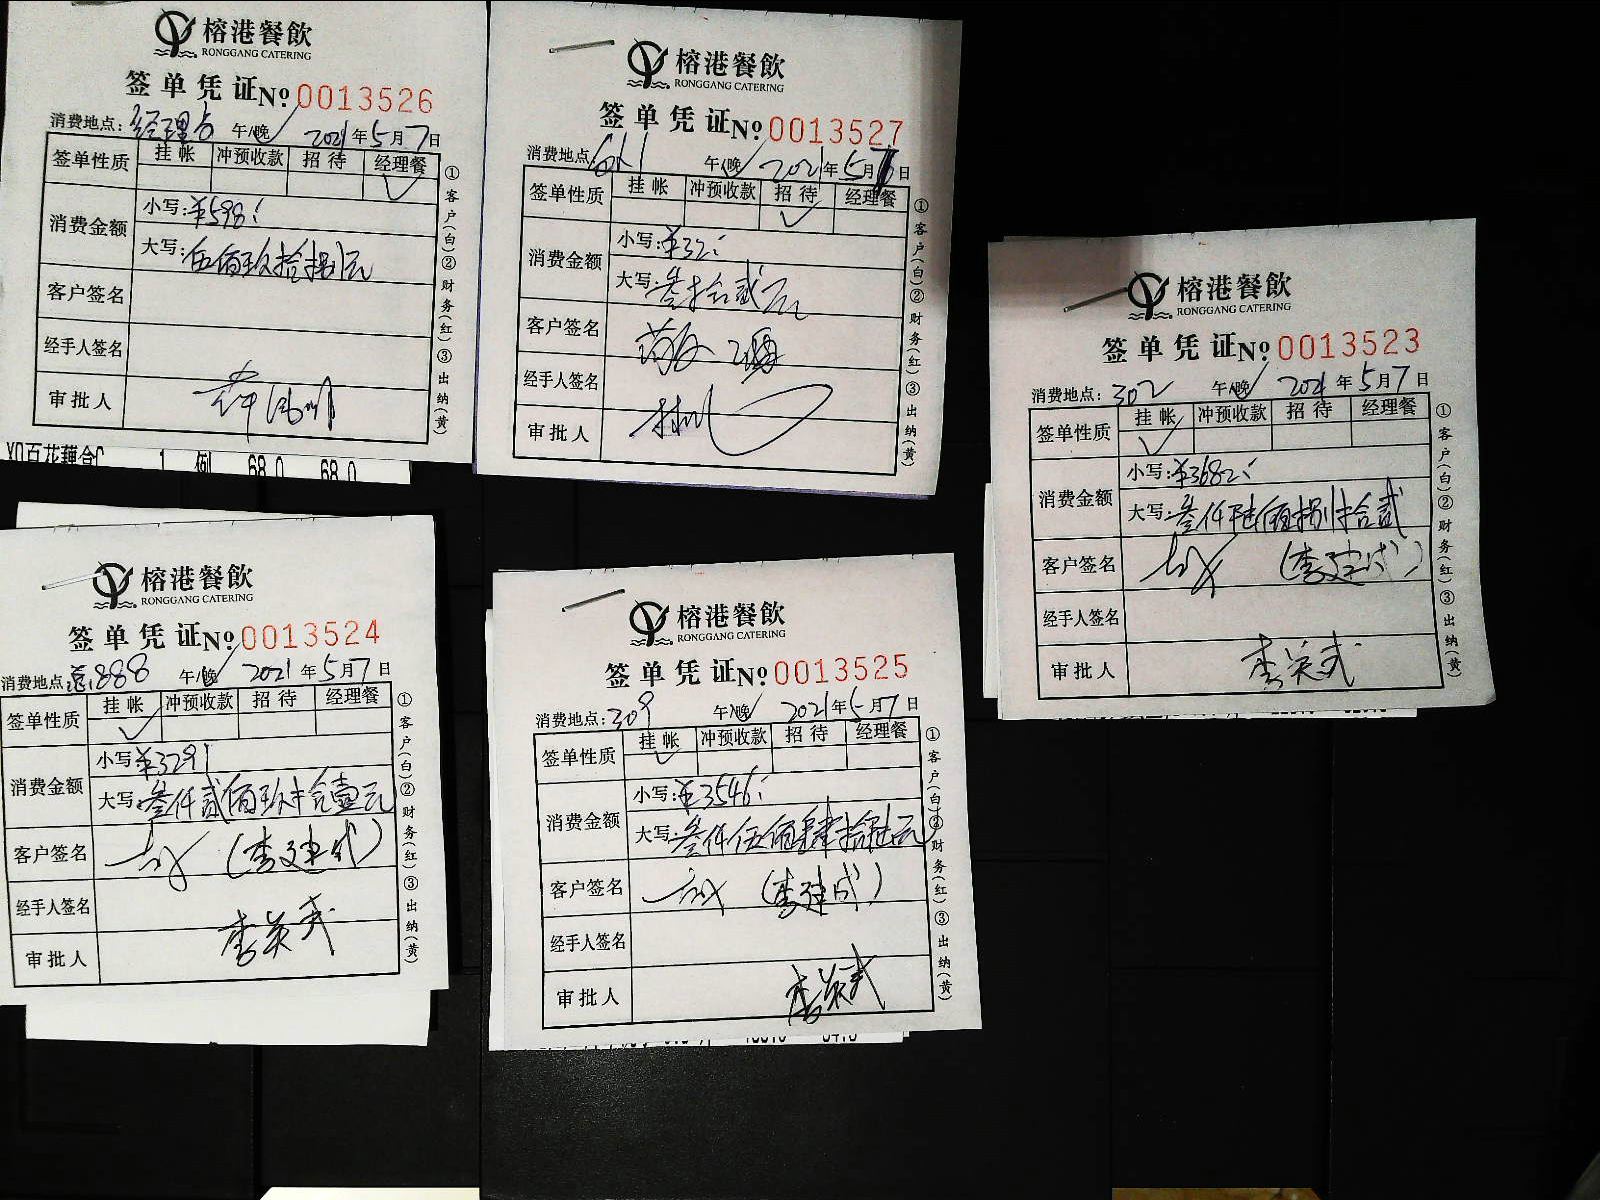 榕港餐飲
RONGGANG CATERING
签单凭证№0013526
消费地点: 经理 午/晚 2021年5月7日
签单性质 挂帐 冲预收款 招待 经理餐
消费金额 小写:¥598
大写: 伍佰玖拾捌元
客户签名
经手人签名
审批人
①客户(白)②财务(红)③出纳(黄)
YO百花釀合 1 例 68.0 68.0
榕港餐飲
RONGGANG CATERING
签单凭证№0013527
消费地点: 午/晚 2021年5月 日
签单性质 挂帐 冲预收款 招待 经理餐
消费金额 小写:¥32
大写: 叁拾贰元
客户签名
经手人签名
审批人
①客户(白)②财务(红)③出纳(黄)
榕港餐飲
RONGGANG CATERING
签单凭证№0013523
消费地点: 302 午/晚 2021年5月7日
签单性质 挂帐 冲预收款 招待 经理餐
消费金额 小写:¥3682
大写: 叁仟陆佰捌拾贰
客户签名 (李建成)
经手人签名
审批人 李英武
①客户(白)②财务(红)③出纳(黄)
榕港餐飲
RONGGANG CATERING
签单凭证№0013524
消费地点: 888 午/晚 2021年5月7日
签单性质 挂帐 冲预收款 招待 经理餐
消费金额 小写:¥3291
大写: 叁仟贰佰玖拾壹元
客户签名 (李建成)
经手人签名 李英武
审批人
①客户(白)②财务(红)③出纳(黄)
榕港餐飲
RONGGANG CATERING
签单凭证№0013525
消费地点: 309 午/晚 2021年5月7日
签单性质 挂帐 冲预收款 招待 经理餐
消费金额 小写:¥3546
大写: 叁仟伍佰肆拾陆元
客户签名 (李建成)
经手人签名
审批人 李英武
①客户(白)②财务(红)③出纳(黄)